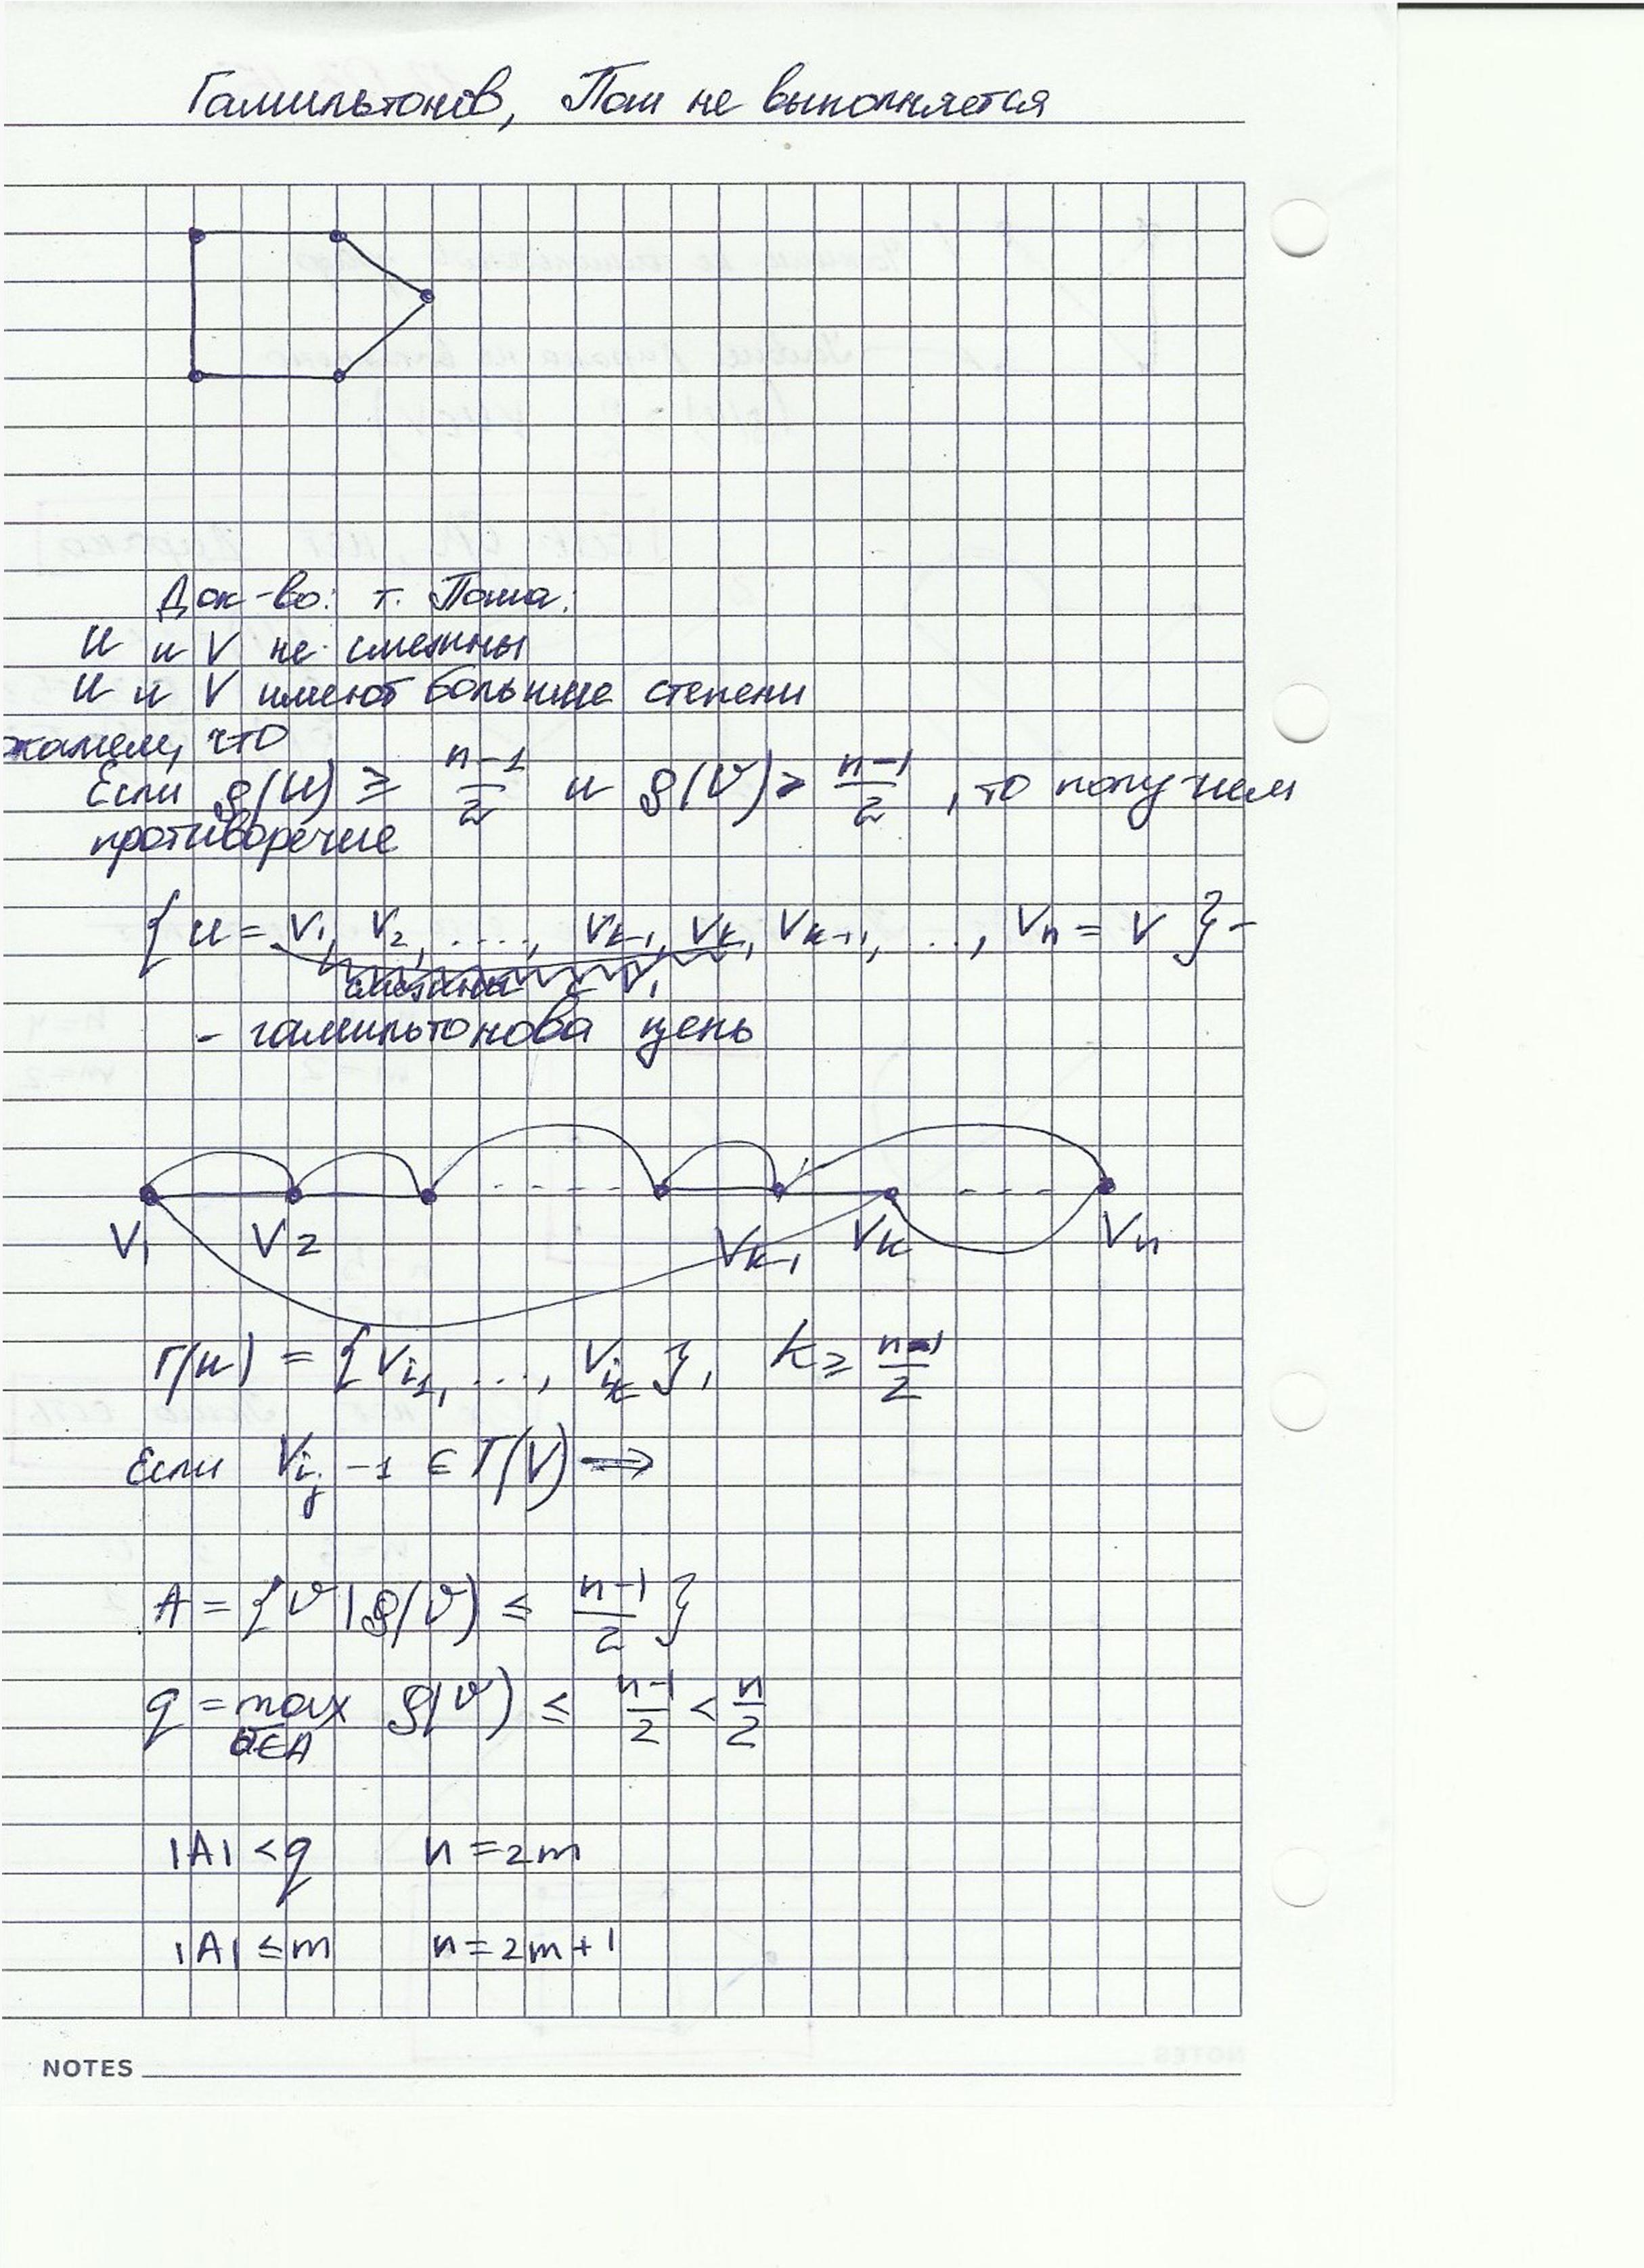 Гамильтонов, Пош не выполняется
Док-во: т. Поша:
U и V не смежны
U и V имеют большие степени
жалем, что
Если ρ(U) ≥ (n-1)/2 и ρ(V) ≥ (n-1)/2, то получием
противоречие
{ U = V₁, V₂, ...., Vₖ₋₁, Vₖ, Vₖ₊₁, ..., Vₙ = V } -
- гамильтонова цепь
V₁ V₂ Vₖ₋₁ Vₖ Vₙ
Γ(u) = { Vᵢ₁, ..., Vᵢₖ }, k ≥ (n-1)/2
Если Vᵢⱼ -1 ∈ Γ(V) ⟹
A = { v | ρ(v) ≤ (n-1)/2 }
q = max ρ(v) ≤ (n-1)/2 < n/2
v∈A
|A| < q n = 2m
|A| ≤ m n = 2m+1
NOTES